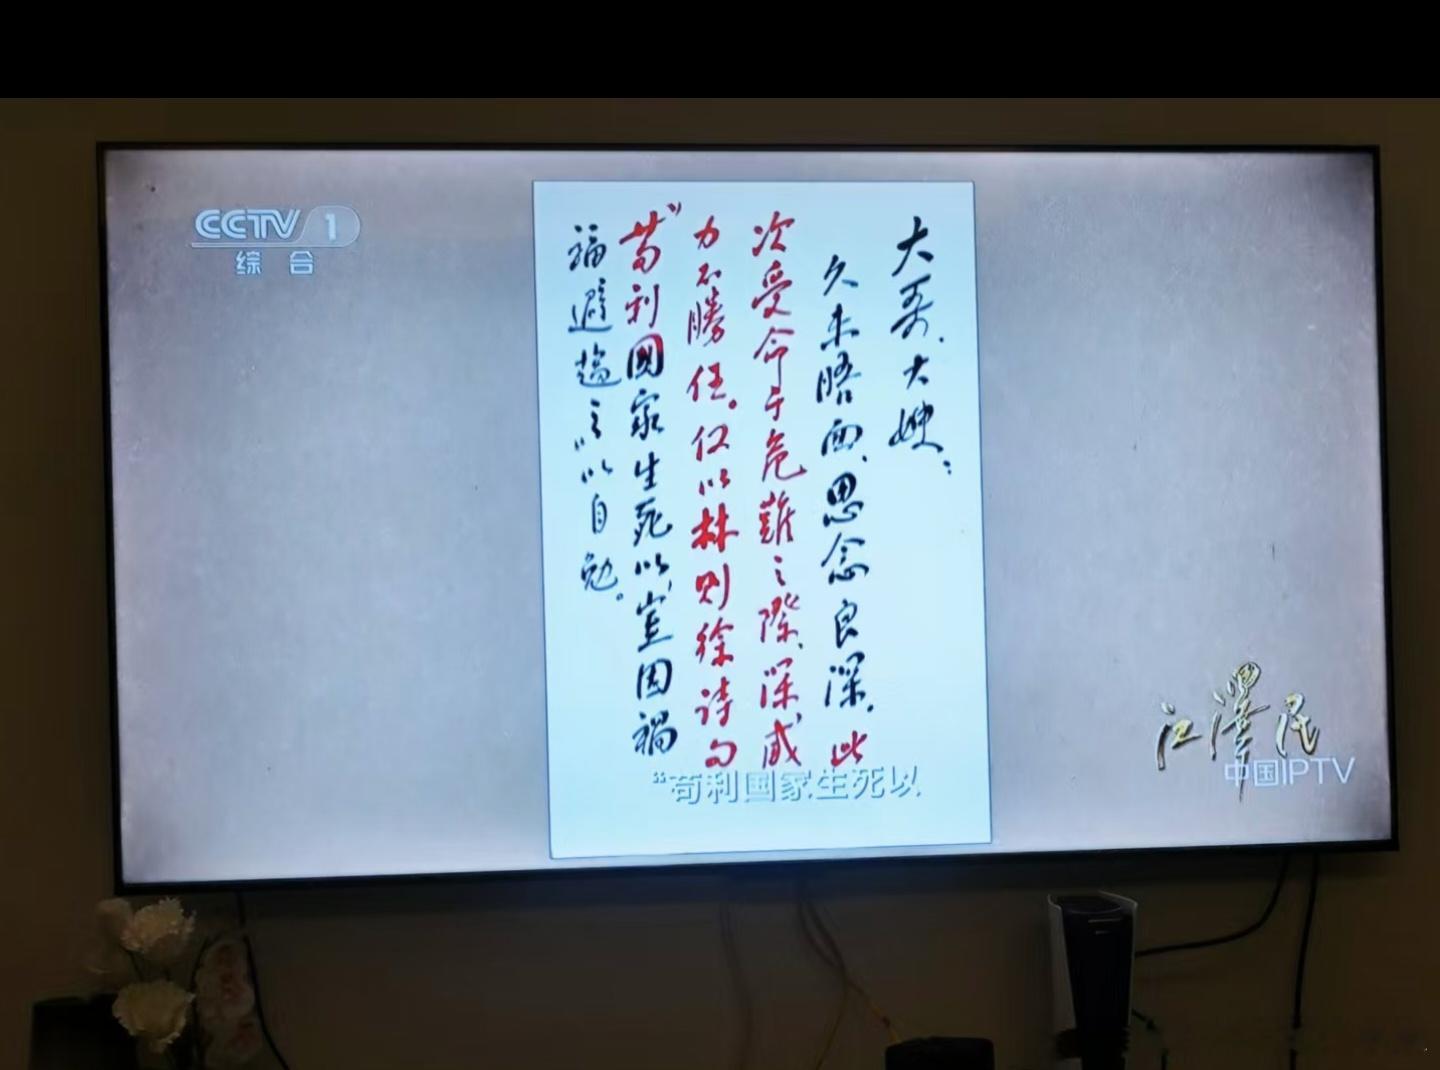 CCTV 1
综合
大哥、大嫂：
久未晤面、思念良深。此
次受命于危難之際、深感
力不勝任。仅以林则徐诗句
“苟利國家生死以、豈因禍
福避趨之”以自勉。
“苟利国家生死以
江澤民
中国IPTV